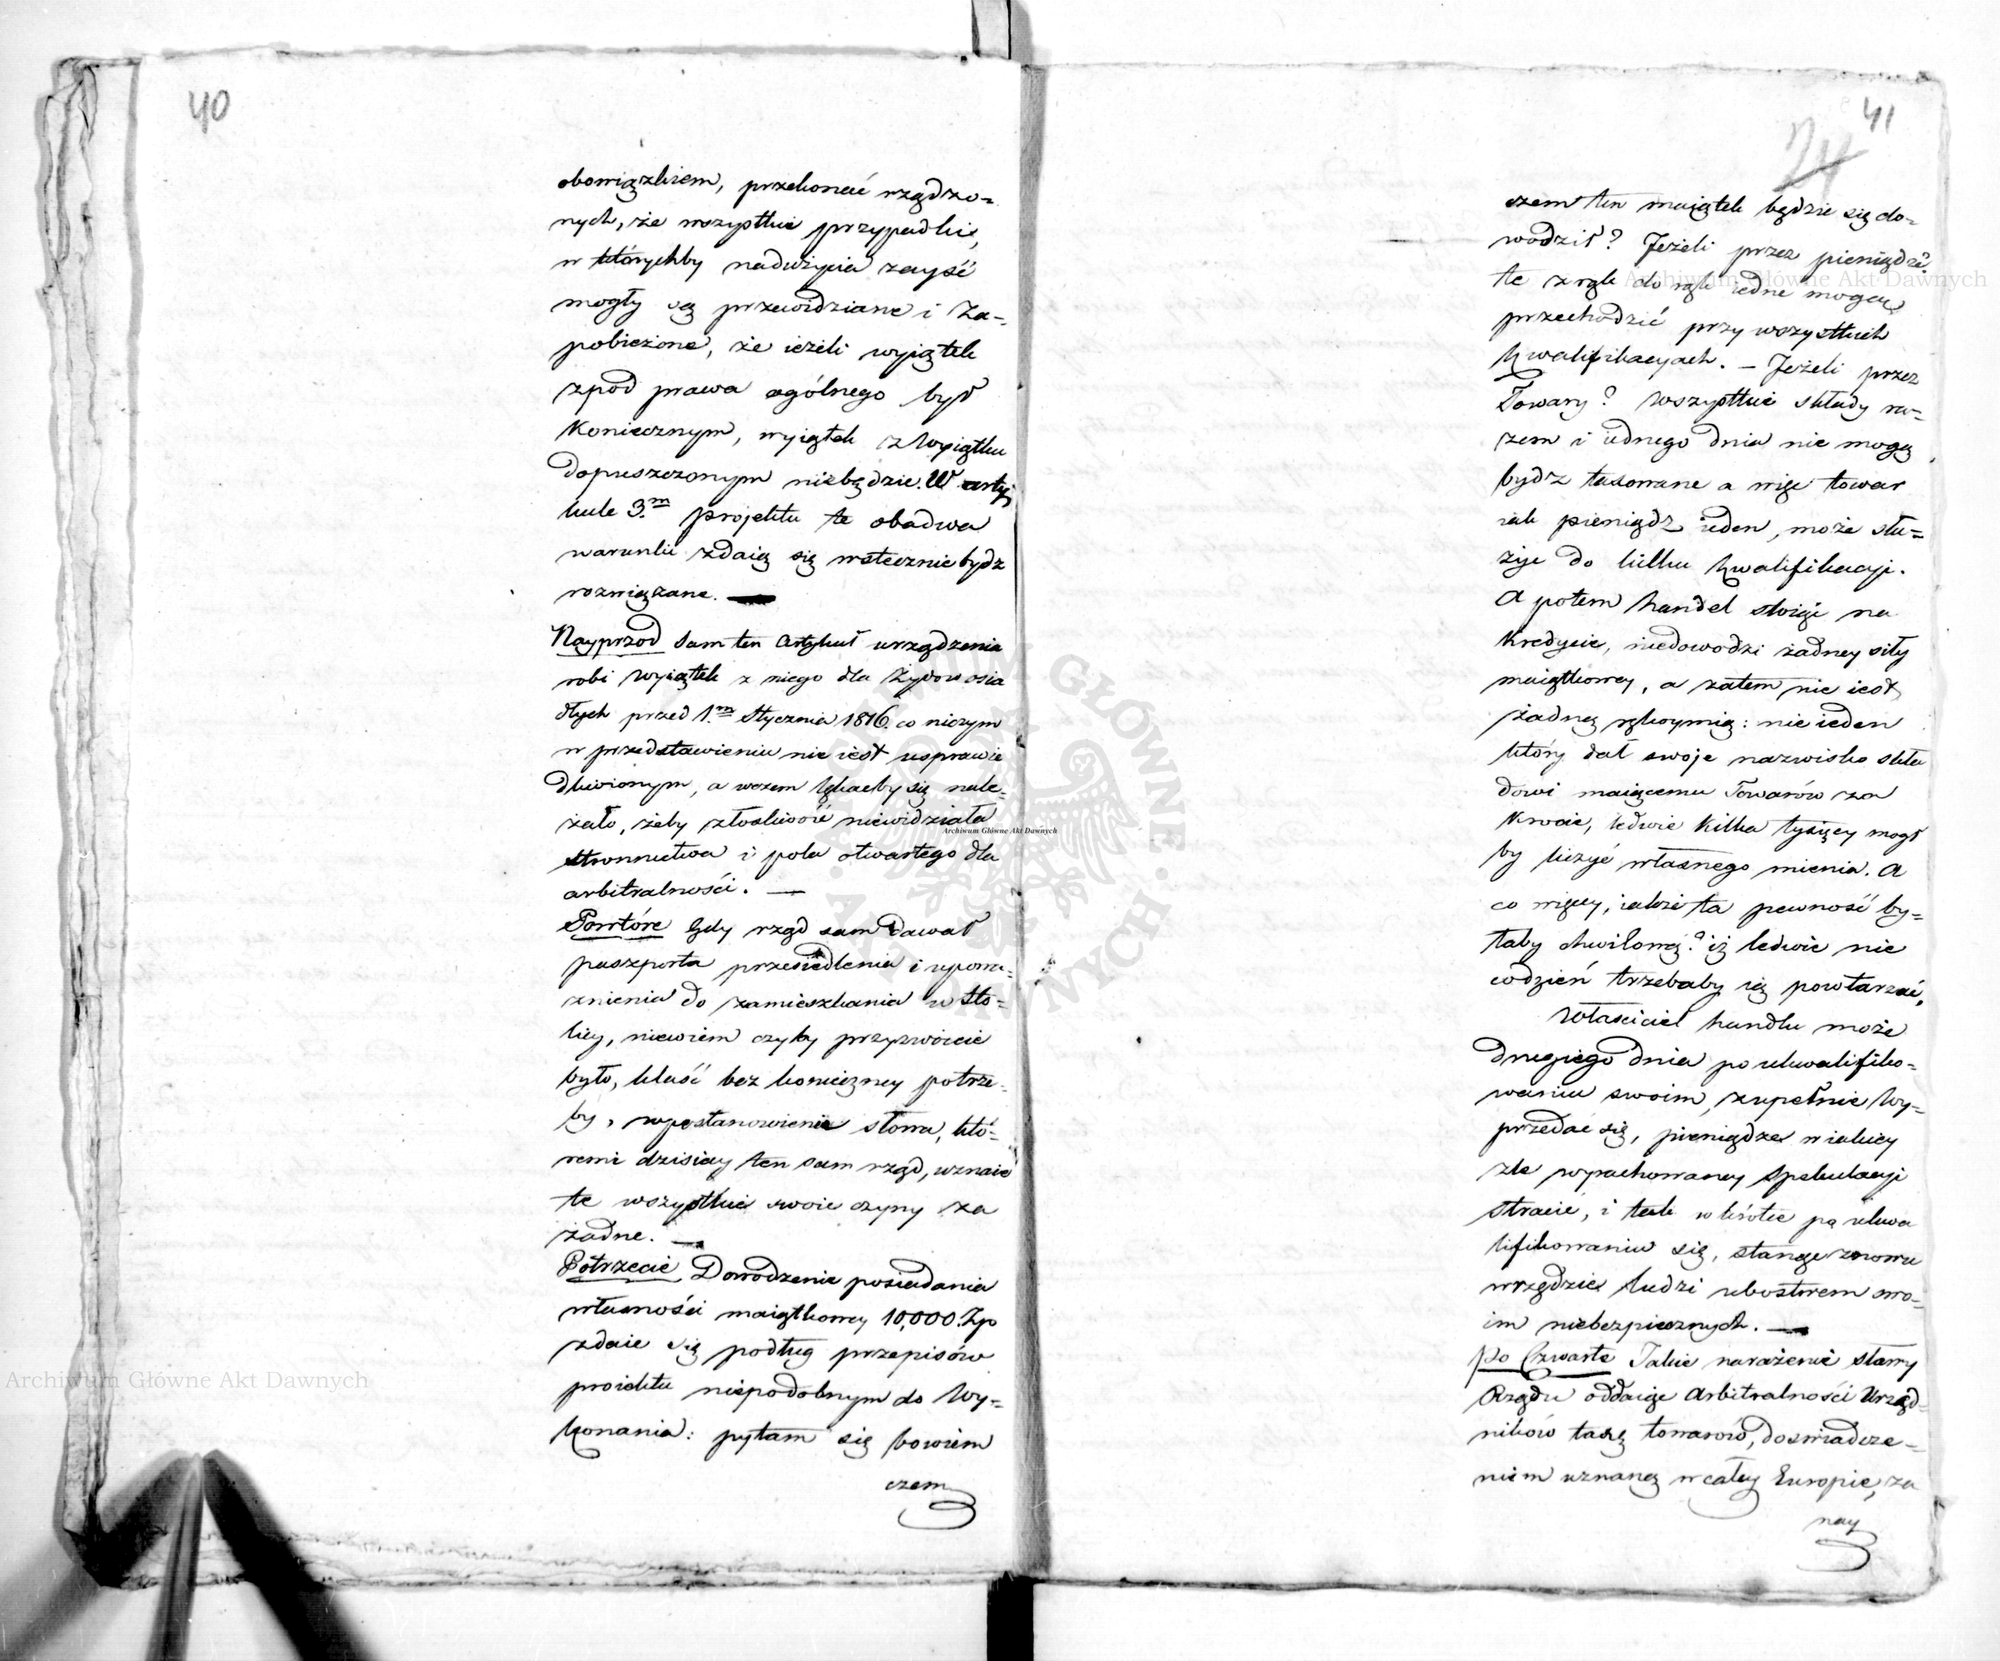 40
obowiązkiem, przekonać rządzo=
nych, że wszystkie przypadki,
w którychby nadużycia zayść
mogły są przewidziane i za=
pobieżone, że ieżeli wyiątek
zpod prawa ogólnego był
koniecznym, wyiątek z wyiątku
dopuszczonym niebędzie. W arty=
kule 3.m projektu te obadwa
warunki zdaią się wstecznie bydz
rozwiązane. —
Nayprzod sam ten Artykuł urządzenia
robi wyiątek z niego dla Żydow osia
dłych przed 1.m Stycznia 1816. co niczym
w przedstawieniu nie iest usprawie
dliwionym, a wczem lękaćby się nale=
żało, żeby złosliwość niewidziała
stronnictwa i pola otwartego dla
arbitralności. —
Powtóre Gdy rząd sam dawał
paszporta przesiedlenia i upowa=
żnienia do zamieszkania w Sto=
licy, niewiem czyby przyzwoicie
było, kłaść bez konieczney potrze=
by, w postanowienie słowa, któ=
remi dzisiay ten sam rząd, uznaie
te wszystkie swoie czyny za
żadne. —
Potrzecie Dowodzenie posiadania
własności maiątkowey 10,000. Zp
zdaie się podług przepisów
proiektu niepodobnym do wy=
konania: pytam się bowiem
czem
41
24
czem ten maiątek będzie się do=
wodził? Jeżeli przez pieniądze?
te z rąk do rąk iedne mogą
przechodzić przy wszystkich
kwalifikacyach. — Jeżeli przez
Towary? wszystkie składy ra=
zem i iednego dnia nie mogą
bydz taxowane a więc towar
iak pieniądz ieden, może słu=
żyć do kilku kwalifikacji.
A potem handel stoiąc na
kredycie, niedowodzi żadney siły
maiątkowey, a zatem nie iest
żadną rękoymią: nie ieden
który dał swoje nazwisko skła
dowi maiącemu Towarów za
krocie, ledwie kilka tysięcy mogł
by liczyć własnego mienia. A
co więcey, iakże ta pewność by=
łaby chwilową? iż ledwie nie
codzień trzebaby ią powtarzać,
Właściciel handlu może
drugiego dnia po ukwalifiko=
waniu swoim, zupełnie wy=
przedać się, pieniądze w iakiey
źle wyrachowaney spekulacyi
stracić, i tak w krótce po ukwa
lifikowaniu się, stanąć znowu
w rzędzie ludzi ubostwem swo=
im niebezpiecznych. —
po Czwarte Takie narażenie sławy
Rządu oddaiąc arbitralności Urzęd=
ników taxę towarów, doswiadcze=
niem uznaną w całey Europie, za
nay
Archiwum Główne Akt Dawnych
Archiwum Główne Akt Dawnych
Archiwum Główne Akt Dawnych